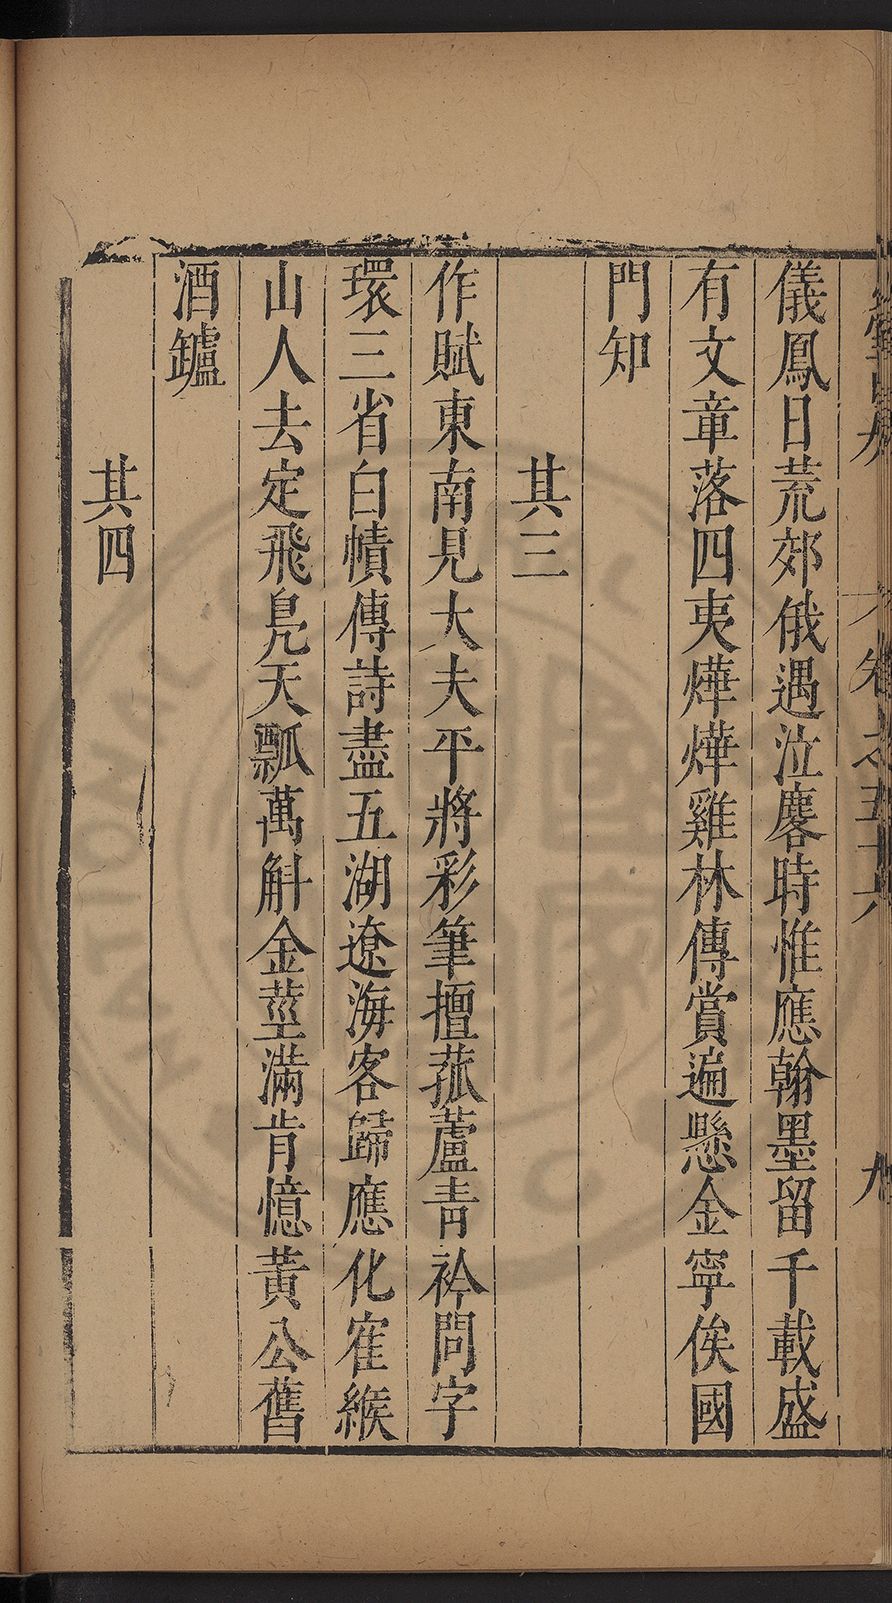 儀鳳日荒郊俄遇泣麐時惟應翰墨留千載盛
有文章落四夷燁燁雞林傳賞遍懸金寧俟國
門知
其三
作賦東南見大夫平將彩筆擅菰蘆青衿問字
環三省白幘傳詩盡五湖遼海客歸應化寉緱
山人去定飛鳧天瓢萬斛金莖滿肯憶黃公舊
酒鑪
其四